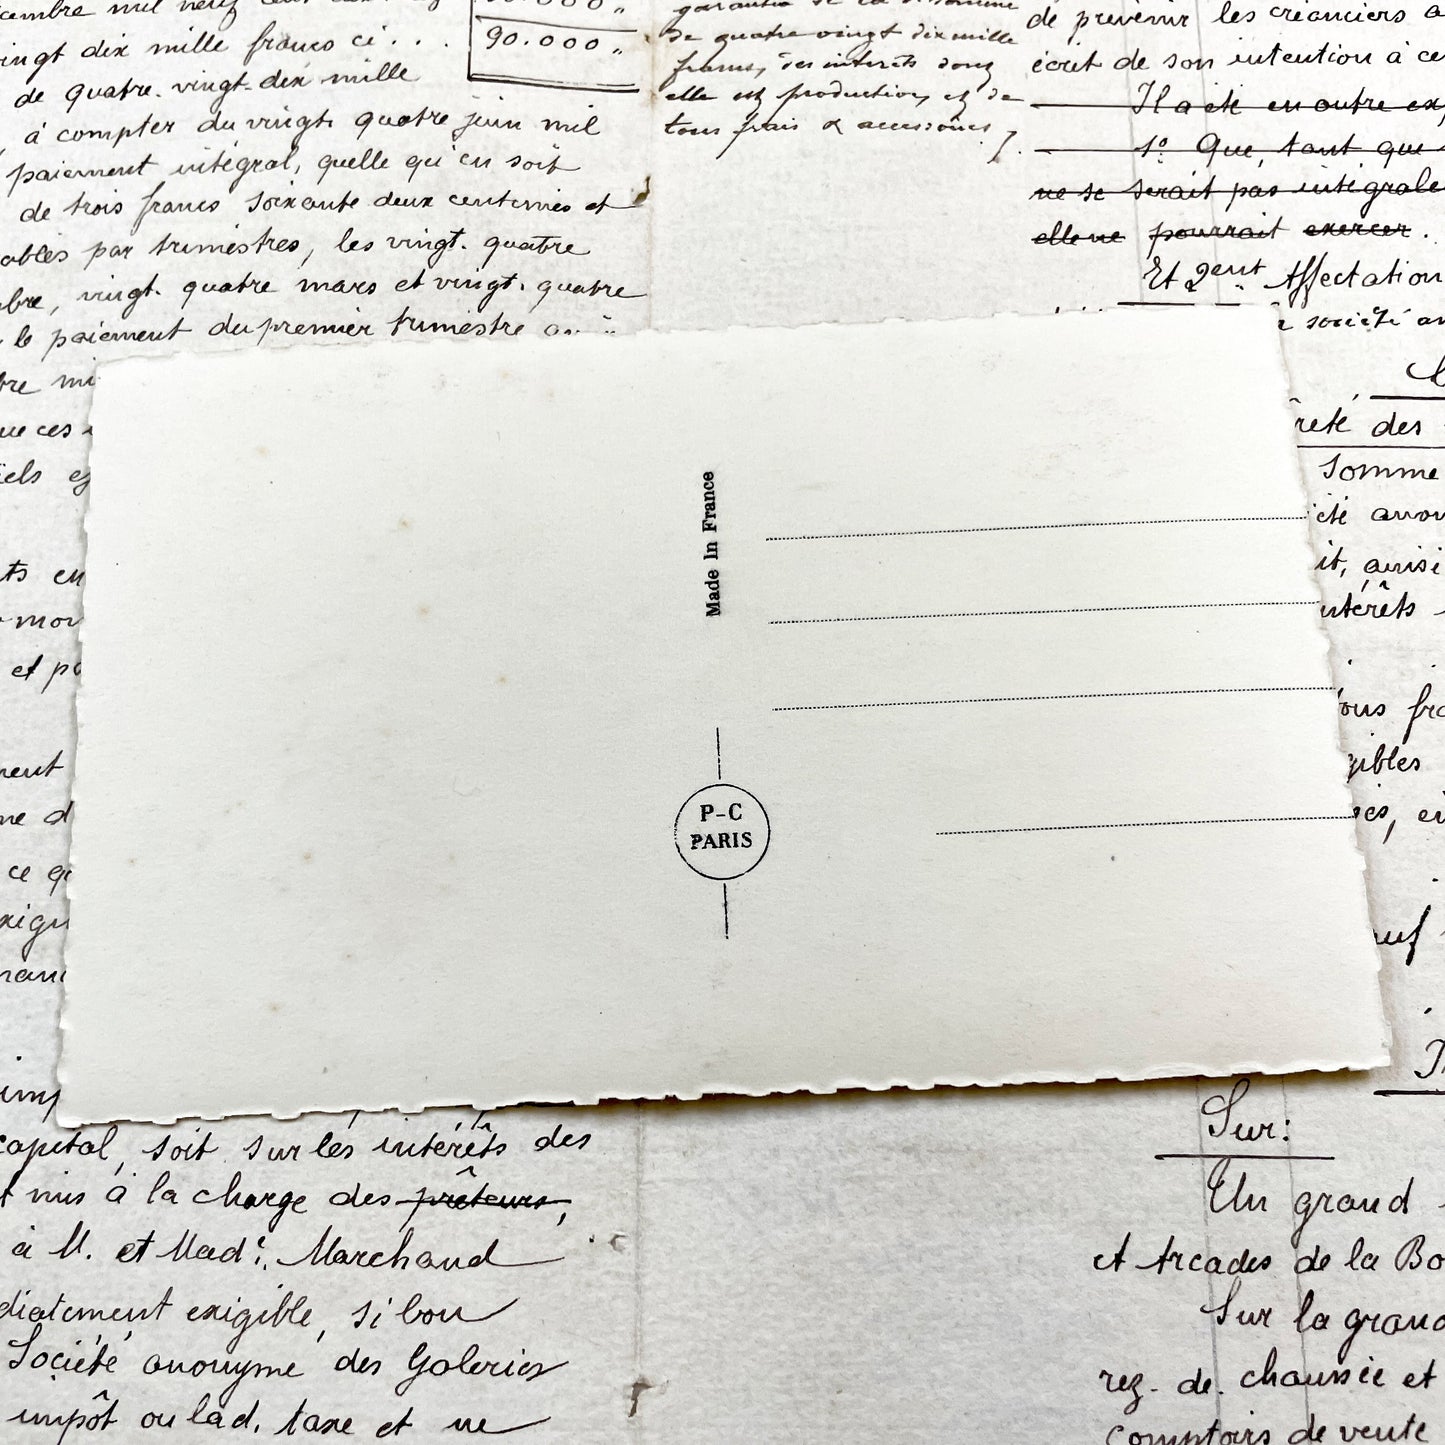 vingt dix mille francs ci . . .
90.000 „
de quatre-vingt-dix mille
à compter du vingt quatre juin mil
paiement intégral, quelle qu'en soit
de trois francs soixante deux centimes et
ables par trimestres, les vingt-quatre
bre, vingt-quatre mars et vingt-quatre
le paiement du premier trimestre
bre mi
que ces
iels
ts en
et po
ment
me d
ce q
exigi
imp
capital, soit sur les intérêts des
mis à la charge des prêteurs,
à M. et Made. Marchand
diatement exigible, si bon
Société anonyme des Galeries
impôt ou lad. taxe et ne
de quatre vingt dix mille
francs, des intérêts dont
elle est production, et de
tous frais & accessoires
de prévenir les créanciers
écrit de son intention à ce
Il a été en outre ex
1° Que, tant que
ne se serait pas intégrale
elle ne pourrait exercer.
Et 2ent Affectation
société an
reté des
Somme
été anon
it, ainsi
intérêts
ous fra
gibles
auf
Sur:
Un grand
et Arcades de la Bo
Sur la grand
rez-de-chaussée et
comptoirs de vente
Made In France
P-C
PARIS